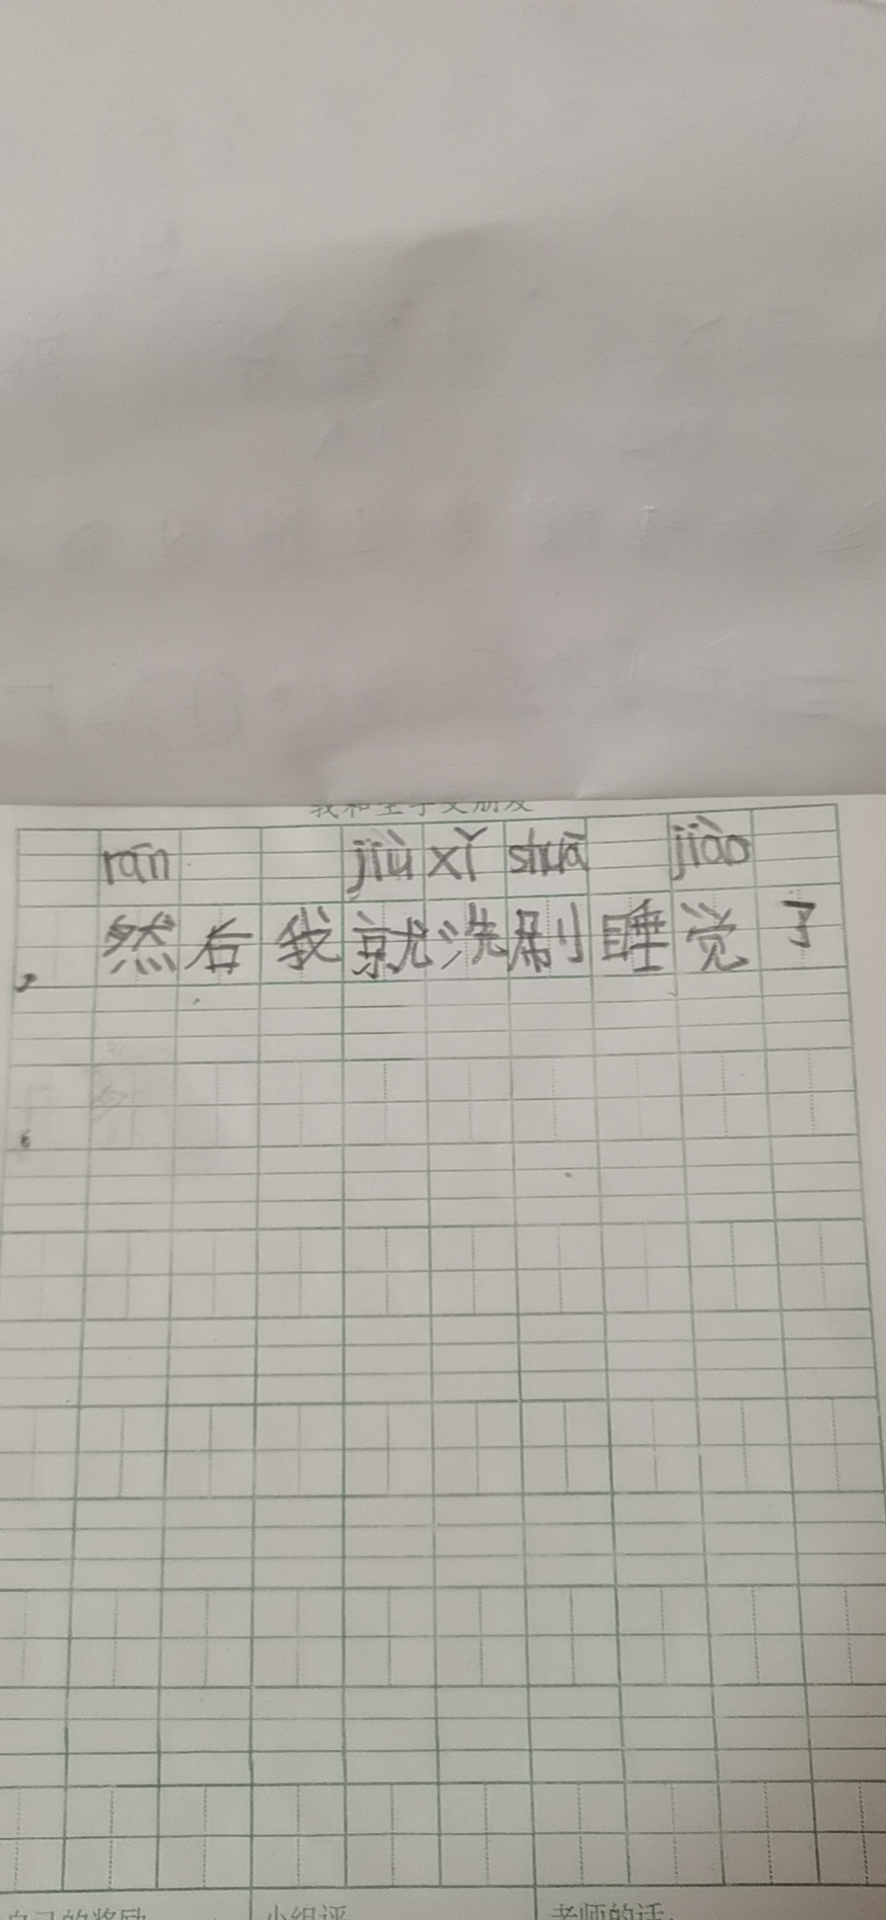 我和生字交朋友
rān jiù xǐ shuā jiào
，然后我就洗刷睡觉了
。
自己的奖励 小组评 老师的话